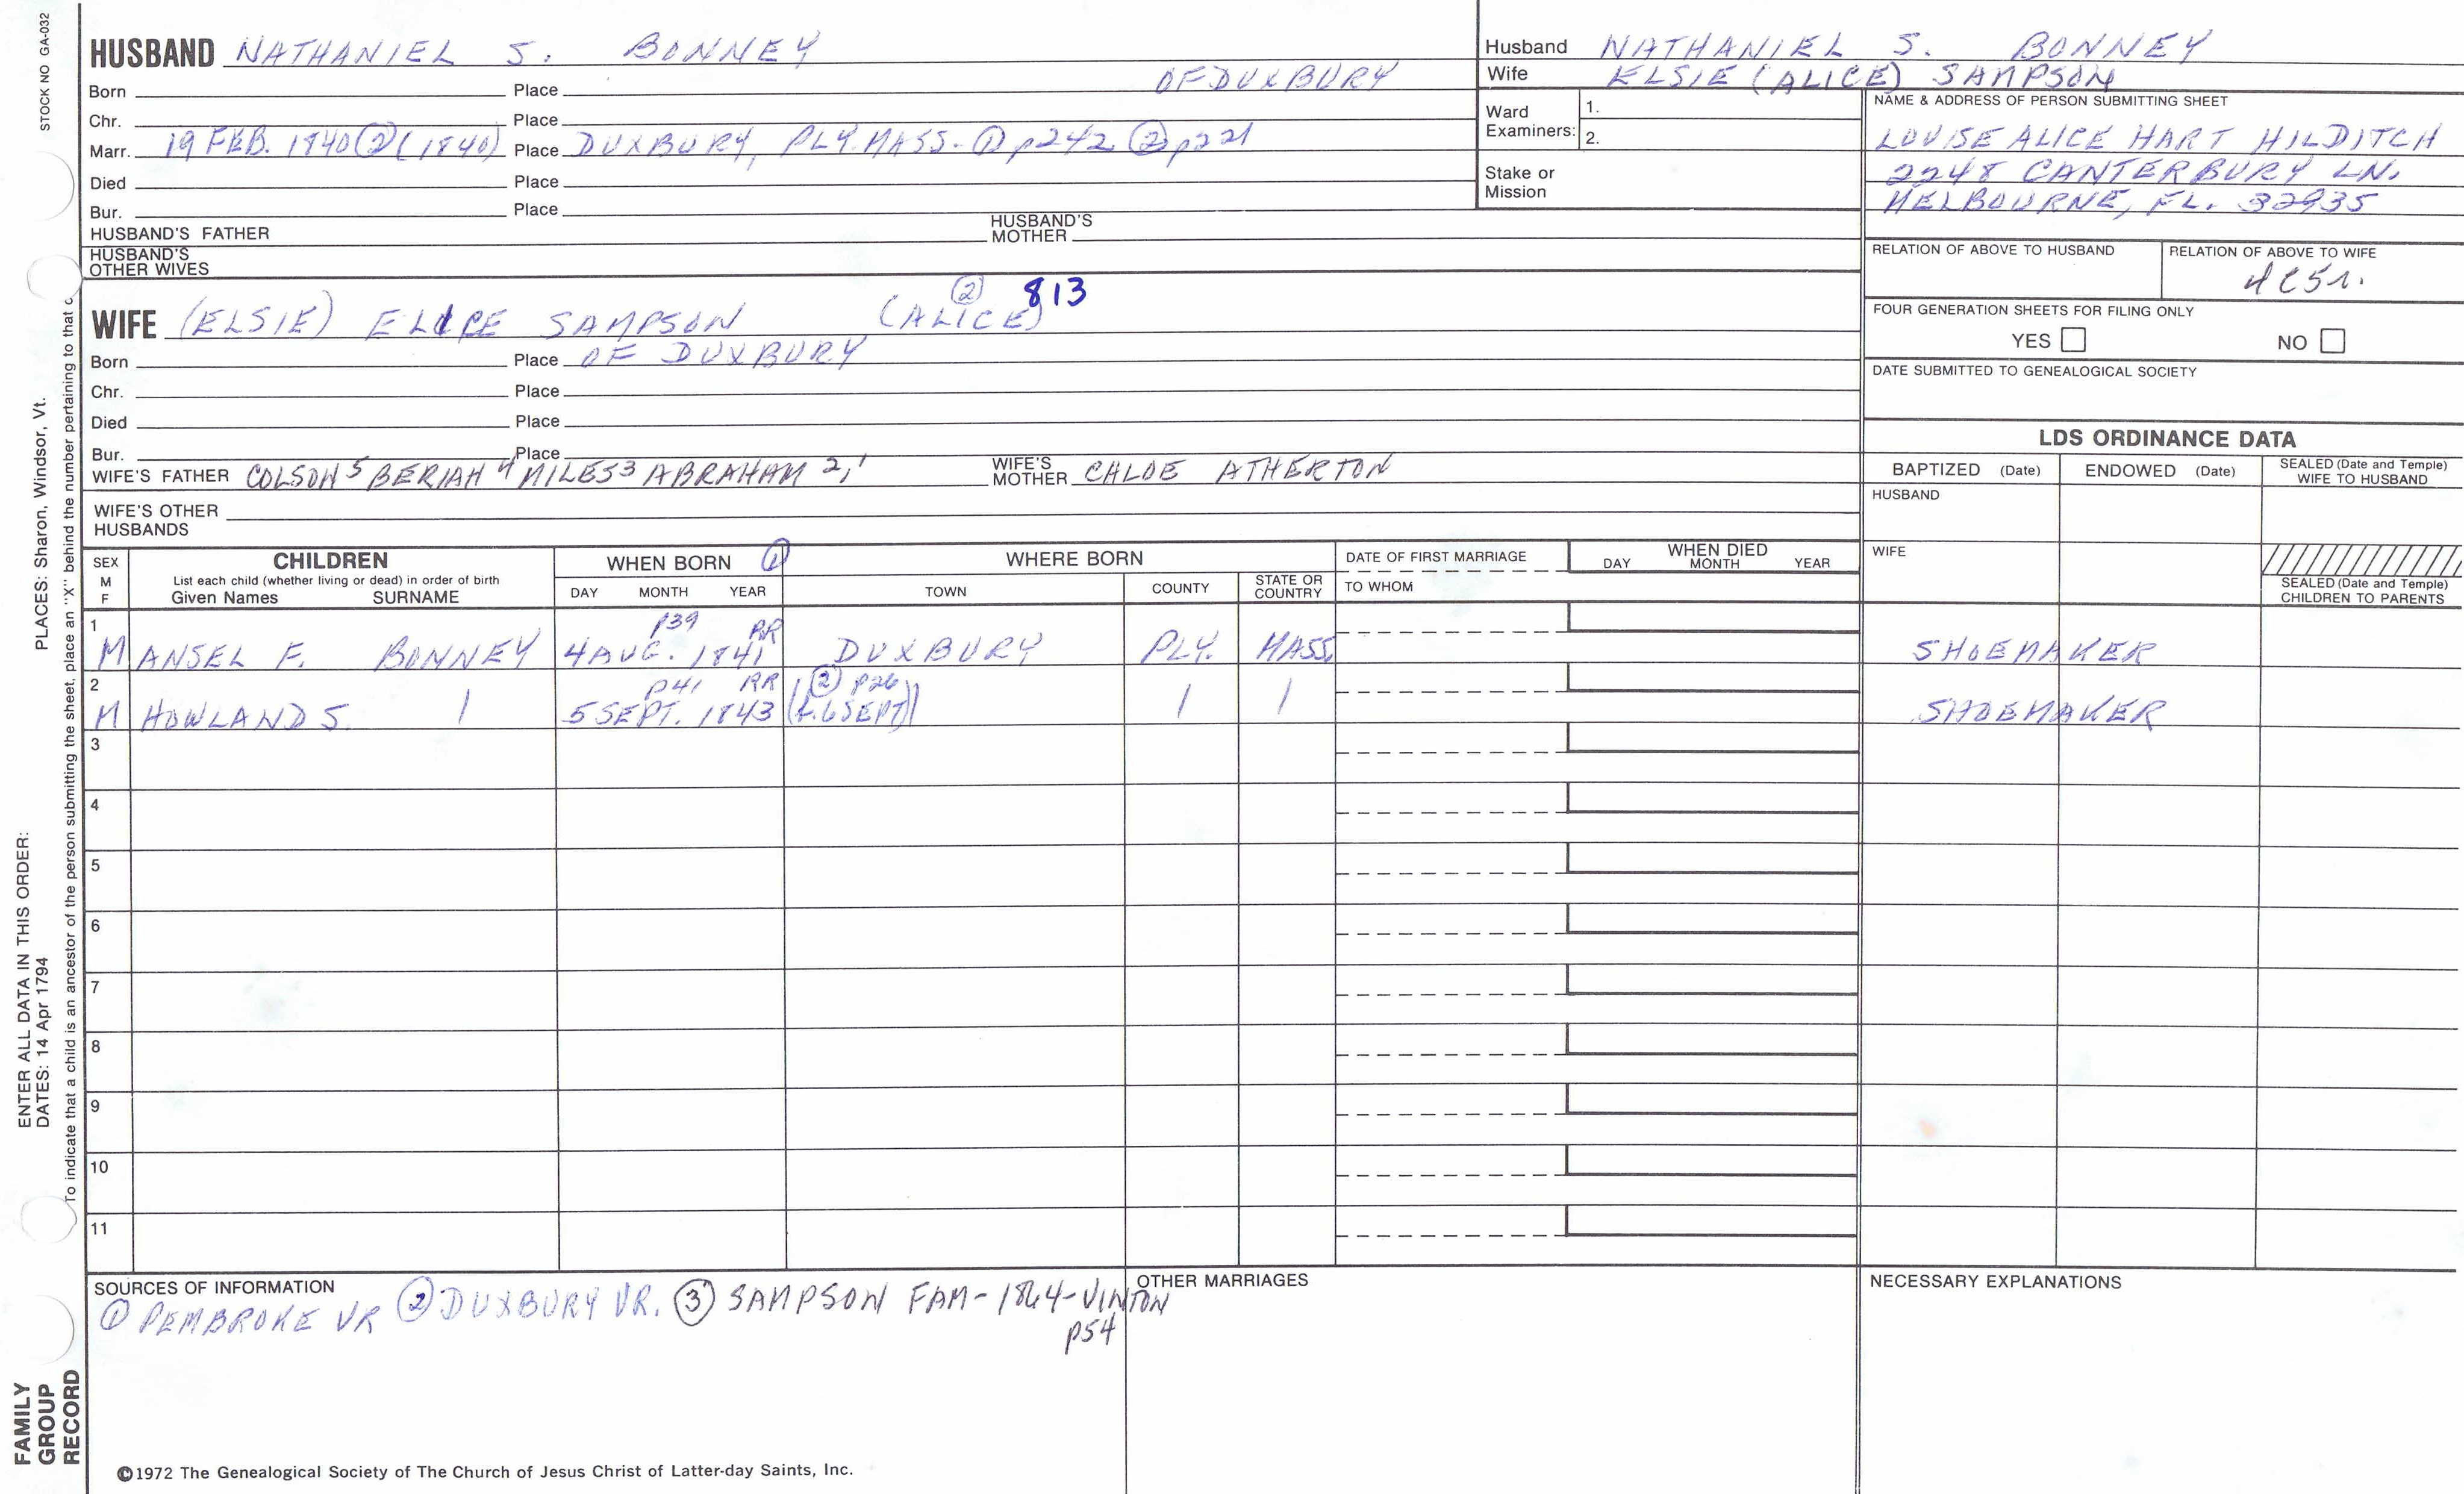 STOCK NO GA-032
HUSBAND NATHANIEL S. BONNEY
Born Place OF DUXBURY
Chr. Place
Marr. 19 FEB. 1840 ② (1840) Place DUXBURY, PLY. MASS. ① p242 ② p221
Died Place
Bur. Place
HUSBAND'S FATHER HUSBAND'S MOTHER
HUSBAND'S OTHER WIVES
Husband NATHANIEL S. BONNEY
Wife ELSIE (ALICE) SAMPSON
Ward Examiners: 1.
2.
Stake or Mission
NAME & ADDRESS OF PERSON SUBMITTING SHEET
LOUISE ALICE HART HILDITCH
2248 CANTERBURY LN.
MELBOURNE, FL. 32935
RELATION OF ABOVE TO HUSBAND
RELATION OF ABOVE TO WIFE
4C5r.
FOUR GENERATION SHEETS FOR FILING ONLY
YES NO
DATE SUBMITTED TO GENEALOGICAL SOCIETY
② 813
WIFE (ELSIE) SAMPSON (ALICE)
Born Place OF DUXBURY
Chr. Place
Died Place
Bur. Place
WIFE'S FATHER COLSON5 BERIAH4 MILES3 ABRAHAM2,1 WIFE'S MOTHER CHLOE ATHERTON
WIFE'S OTHER HUSBANDS
LDS ORDINANCE DATA
BAPTIZED (Date) ENDOWED (Date) SEALED (Date and Temple) WIFE TO HUSBAND
HUSBAND
WIFE
SEALED (Date and Temple) CHILDREN TO PARENTS
SEX M F
CHILDREN
List each child (whether living or dead) in order of birth
Given Names SURNAME
WHEN BORN ①
DAY MONTH YEAR
WHERE BORN
TOWN COUNTY STATE OR COUNTRY
DATE OF FIRST MARRIAGE
TO WHOM
WHEN DIED
DAY MONTH YEAR
1 p39 RR
M ANSEL F. BONNEY 4 AUG. 1841 DUXBURY PLY. MASS. SHOEMAKER
2 p41 RR (② p26
M HOWLAND S. 5 SEPT. 1843 6 SEPT) SHOEMAKER
3
4
5
6
7
8
9
10
11
SOURCES OF INFORMATION
① PEMBROKE VR ② DUXBURY VR. ③ SAMPSON FAM-1864-VINTON
p54
OTHER MARRIAGES
NECESSARY EXPLANATIONS
©1972 The Genealogical Society of The Church of Jesus Christ of Latter-day Saints, Inc.
FAMILY GROUP RECORD
ENTER ALL DATA IN THIS ORDER:
DATES: 14 Apr 1794
PLACES: Sharon, Windsor, Vt.
To indicate that a child is an ancestor of the person submitting the sheet, place an "X" behind the number pertaining to that c